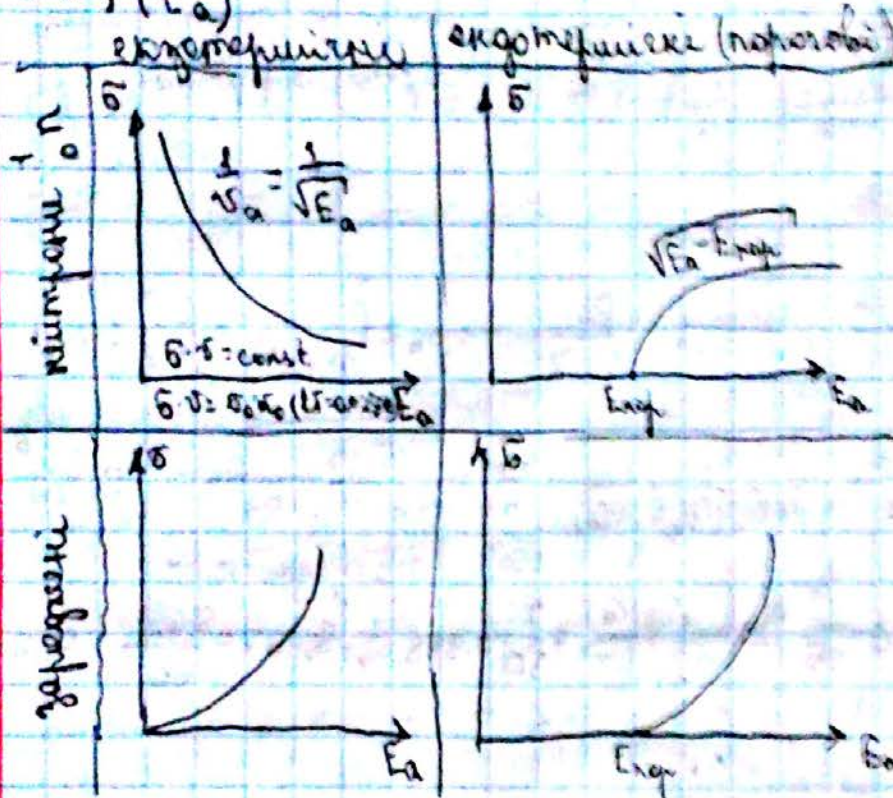 екзотермічні
ендотермічні (порогові)
нейтрони ¹₀n
σ
1/vₐ = 1/√Eₐ
σ·v = const
σ·v = σ₀v₀
Eₐ
σ
√Eₐ - Eпор
Eпор
Eₐ
заряджені
σ
Eₐ
σ
Eпор
Eₐ